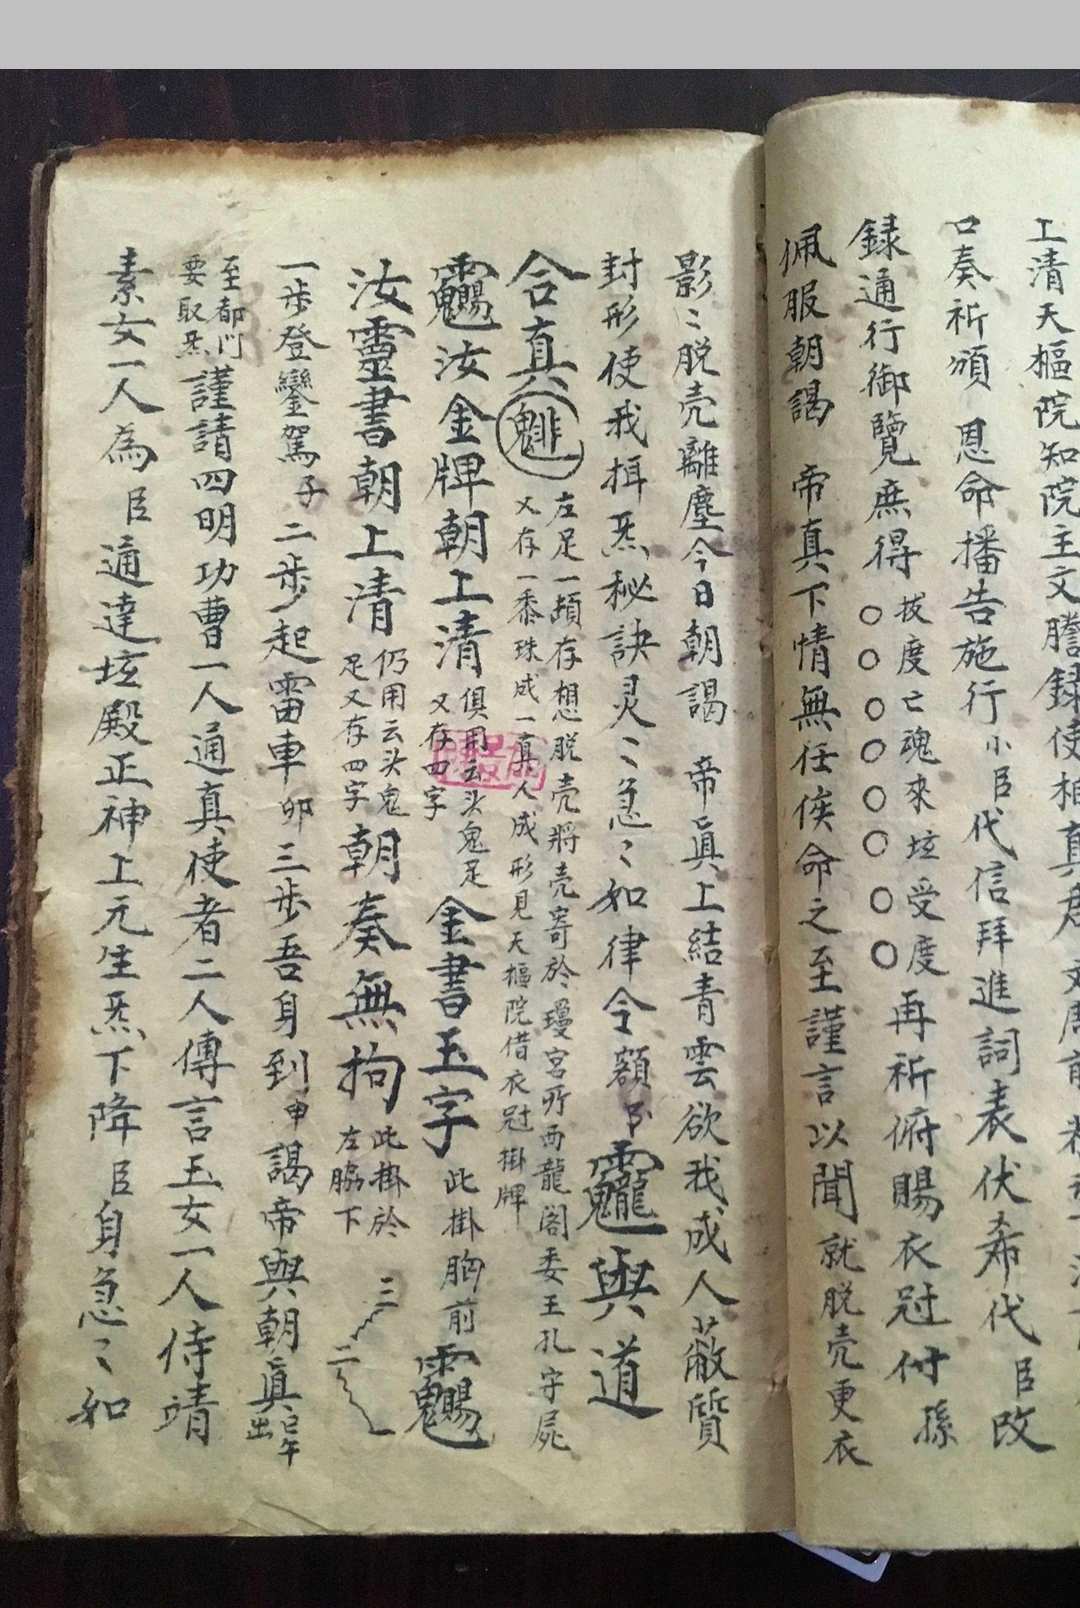 上清天樞院知院主文謄錄使相真君
口奏祈頒 恩命播告施行小臣代信拜進詞表伏希代臣改
録通行御覽庶得拔度亡魂來垓受度○○○○○○○○再祈俯賜衣冠付孫
佩服朝謁 帝真下情無任俟命之至謹言以聞就脱壳更衣
影〻脱壳離塵今日朝謁 帝眞上結青雲欲我成人蔽質
封形使我揖炁秘訣灵〻急〻如律令額
與道
合真
左足一頓存想脱壳將壳寄於瓊宮所西龍閣委王孔守屍
又存一黍珠成一真人成形見天樞院借衣冠掛牌
汝金牌朝上清
俱用云头鬼足
又存四字
金書玉字此掛胸前
汝靈書朝上清
仍用云头鬼
足又存四字
朝奏無拘
此掛於
左脇下
一步登鑾駕子二步起雷車卯三步吾身到申謁帝與朝眞
至都門
要取炁
謹請四明功曹一人通真使者二人傳言玉女一人侍靖
素女一人為臣通達垓殿正神上元生炁下降臣身急〻如